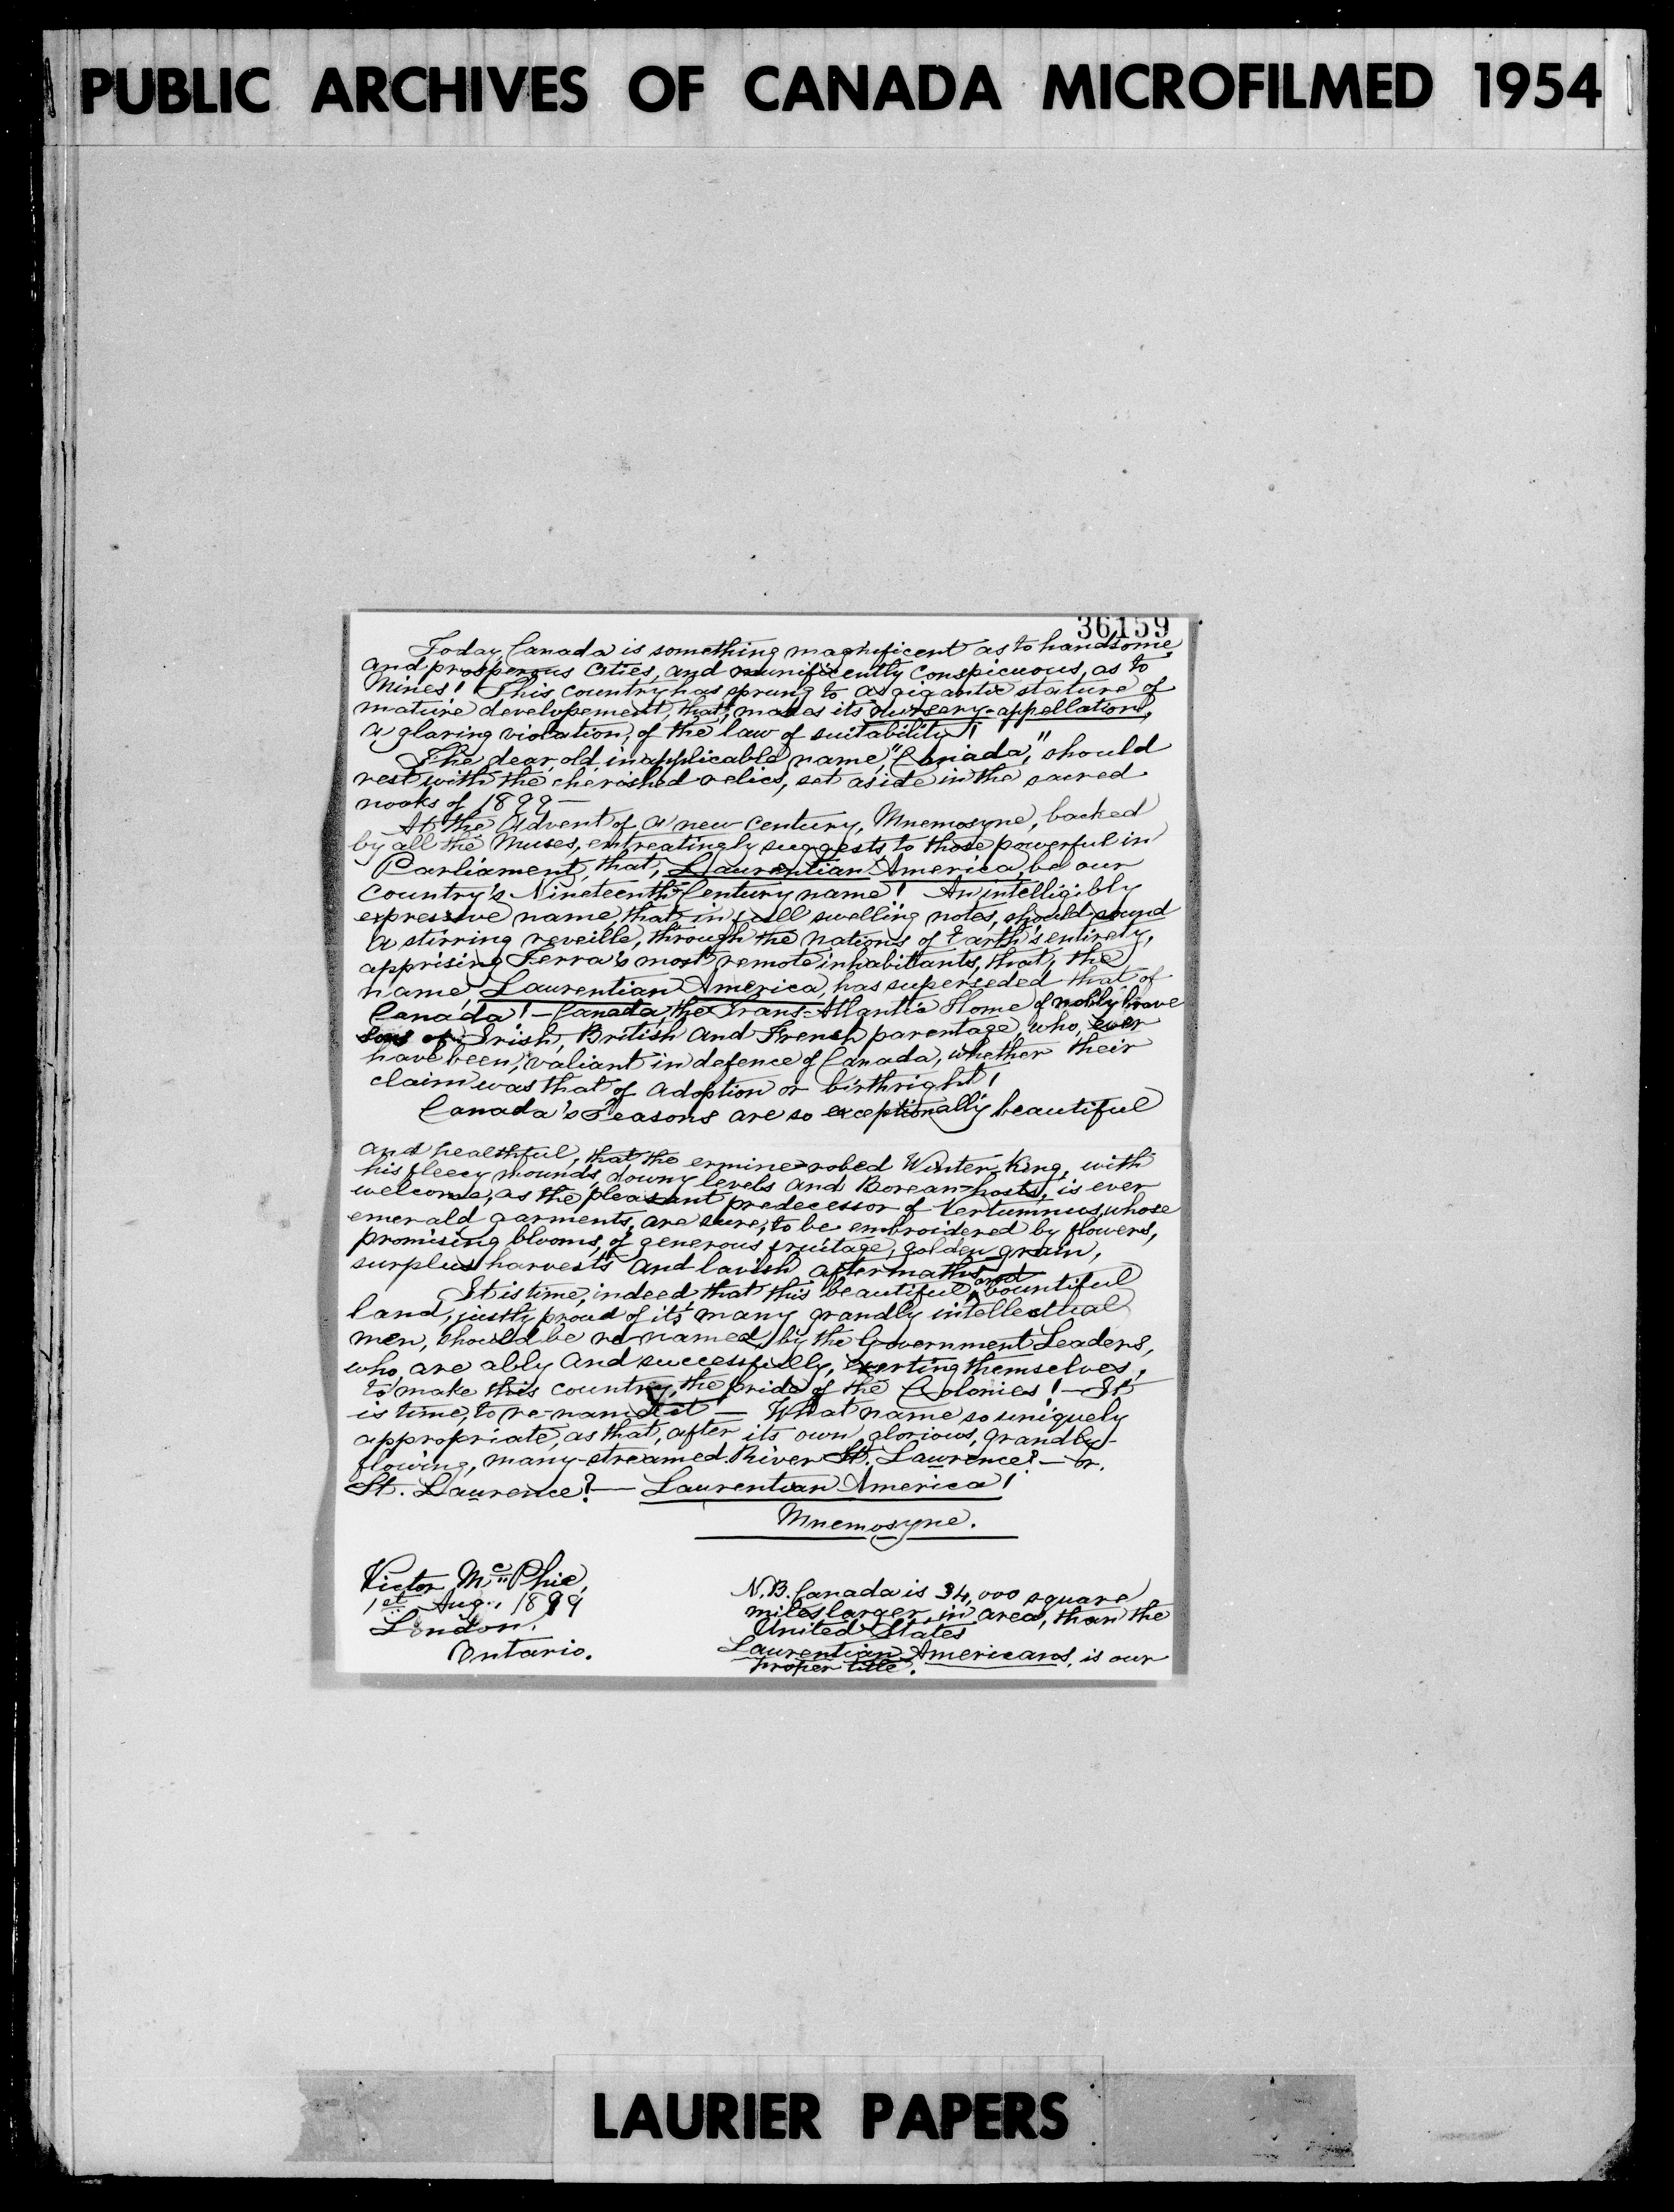 PUBLIC ARCHIVES OF CANADA MICROFILMED 1954
36159
Today, Canada is something magnificent as to handsome
and prosperous Cities, and munificently conspicuous, as to
Mines! This country has sprung to a gigantic stature of
mature developement, that, makes its nursery-appellation,
a glaring violation, of the law of suitability!
The dear, old, inapplicable name, "Canada," should
rest with the cherished relics, set aside in the sacred
nooks of 1899—
At the Advent of a new century, Mnemosyne, backed
by all the Muses, entreatingly suggests to those powerful in
Parliament, that, Laurentian America, be our
country's Nineteenth-Century name! An intelligibly
expressive name, that, in full swelling notes, should sound
a stirring reveille, through the nations of Earth's entirety,
apprising Terra's most remote inhabitants, that, the
name, Laurentian America, has superseded that of
Canada! — Canada, the Trans-Atlantic Home of nobly brave
sons of Irish, British and French parentage, who, ever
have been, valiant in defence of Canada, whether their
claim was that of adoption or birthright!
Canada's Seasons are so exceptionally beautiful
and healthful, that the ermine-robed Winter-King, with
his fleecy mounds, downy levels and Borean-hosts, is ever
welcome, as the pleasant predecessor of Vertumnus, whose
emerald garments, are sure, to be embroidered by flowers,
promising blooms, of generous fruitage, golden grain,
surplus harvests and lavish aftermaths.
It is time, indeed that this beautiful and bountiful
land, justly proud of its many grandly intellectual
men, should be re-named by the Government Leaders,
who, are ably and successfully, exerting themselves,
to make this country, the pride of the Colonies! — It
is time, to re-name it — What name so uniquely
appropriate, as that, after its own glorious, grandly-
flowing, many-streamed River St. Lawrence? — or,
St. Laurence? — Laurentian America!
Mnemosyne.
Victor McPhie,
1st Aug., 1899
London,
Ontario.
N.B. Canada is 34,000 square
miles larger, in area, than the
United States
Laurentian Americans, is our
proper title.
LAURIER PAPERS